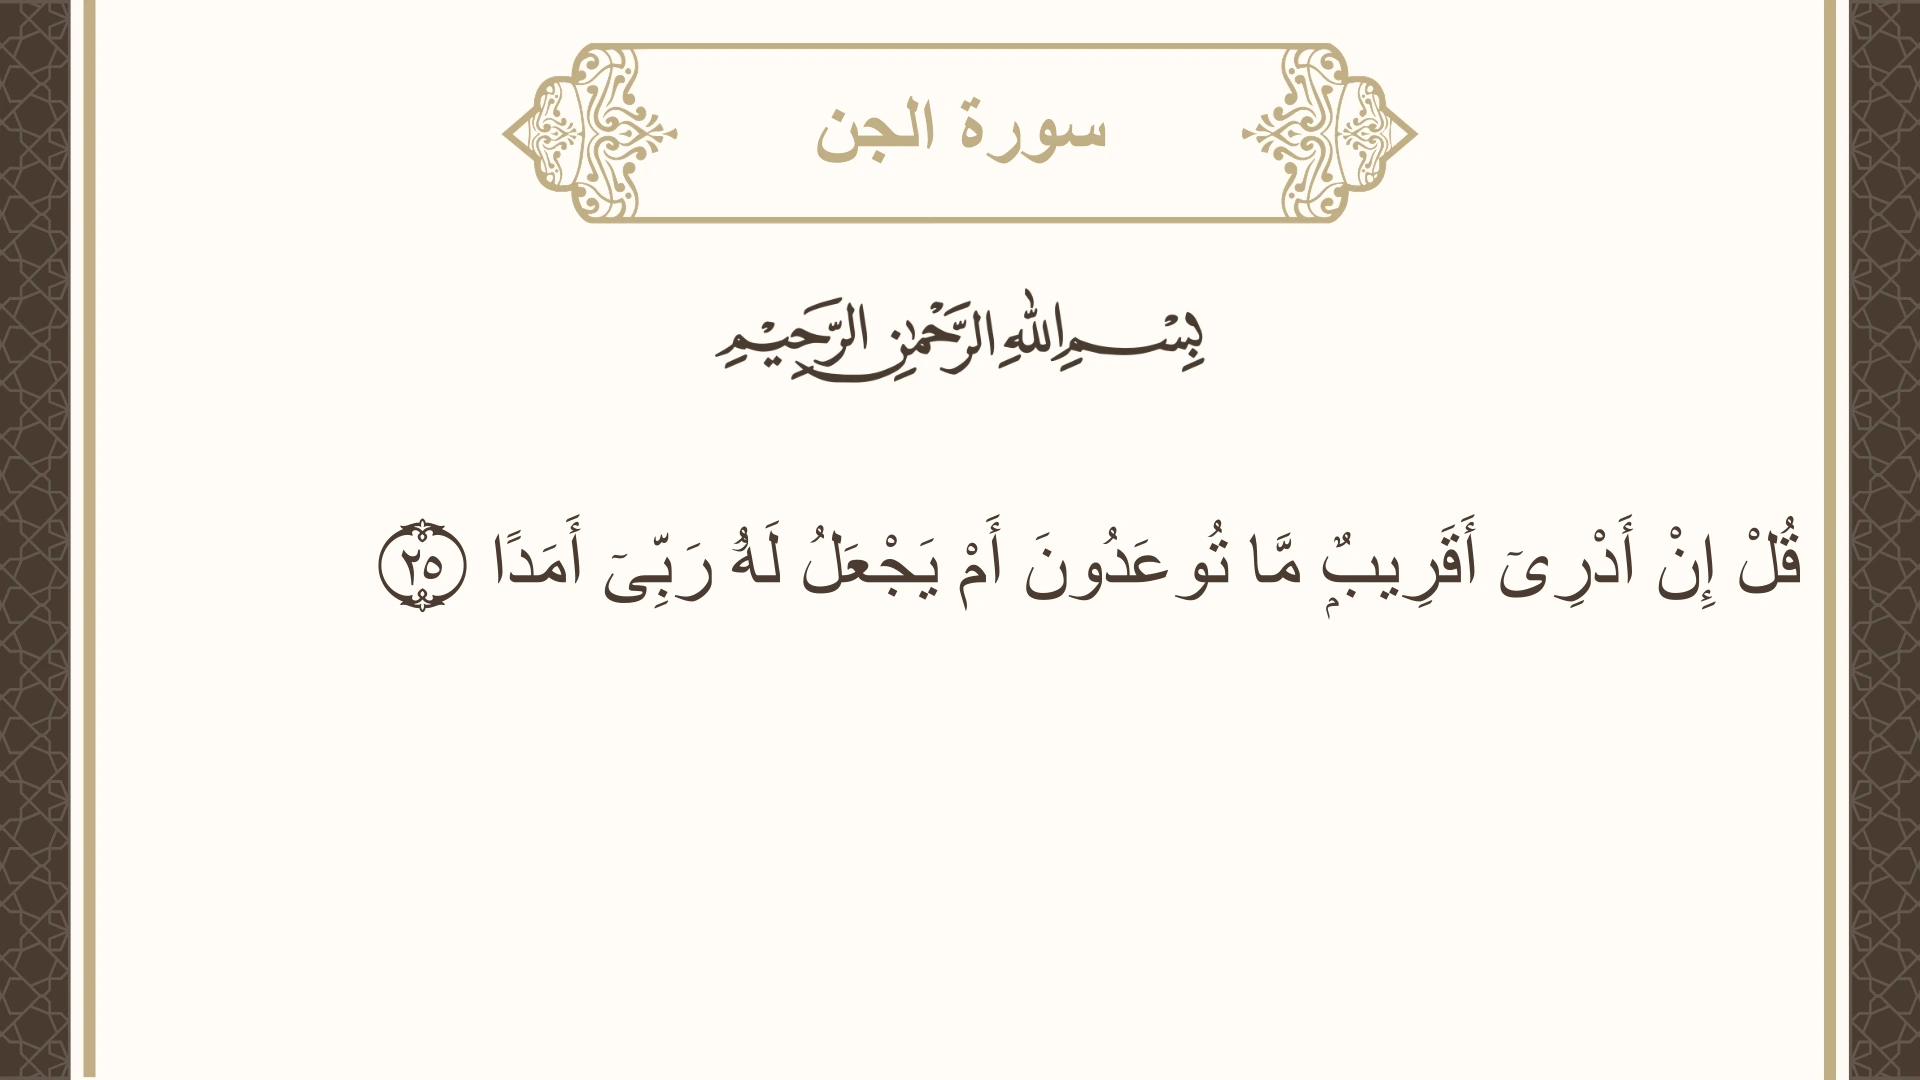 سورة الجن
بِسْمِ اللهِ الرَّحْمٰنِ الرَّحِيْمِ
قُلْ إِنْ أَدْرِىٓ أَقَرِيبٌۭ مَّا تُوعَدُونَ أَمْ يَجْعَلُ لَهُۥ رَبِّىٓ أَمَدًا ٢٥